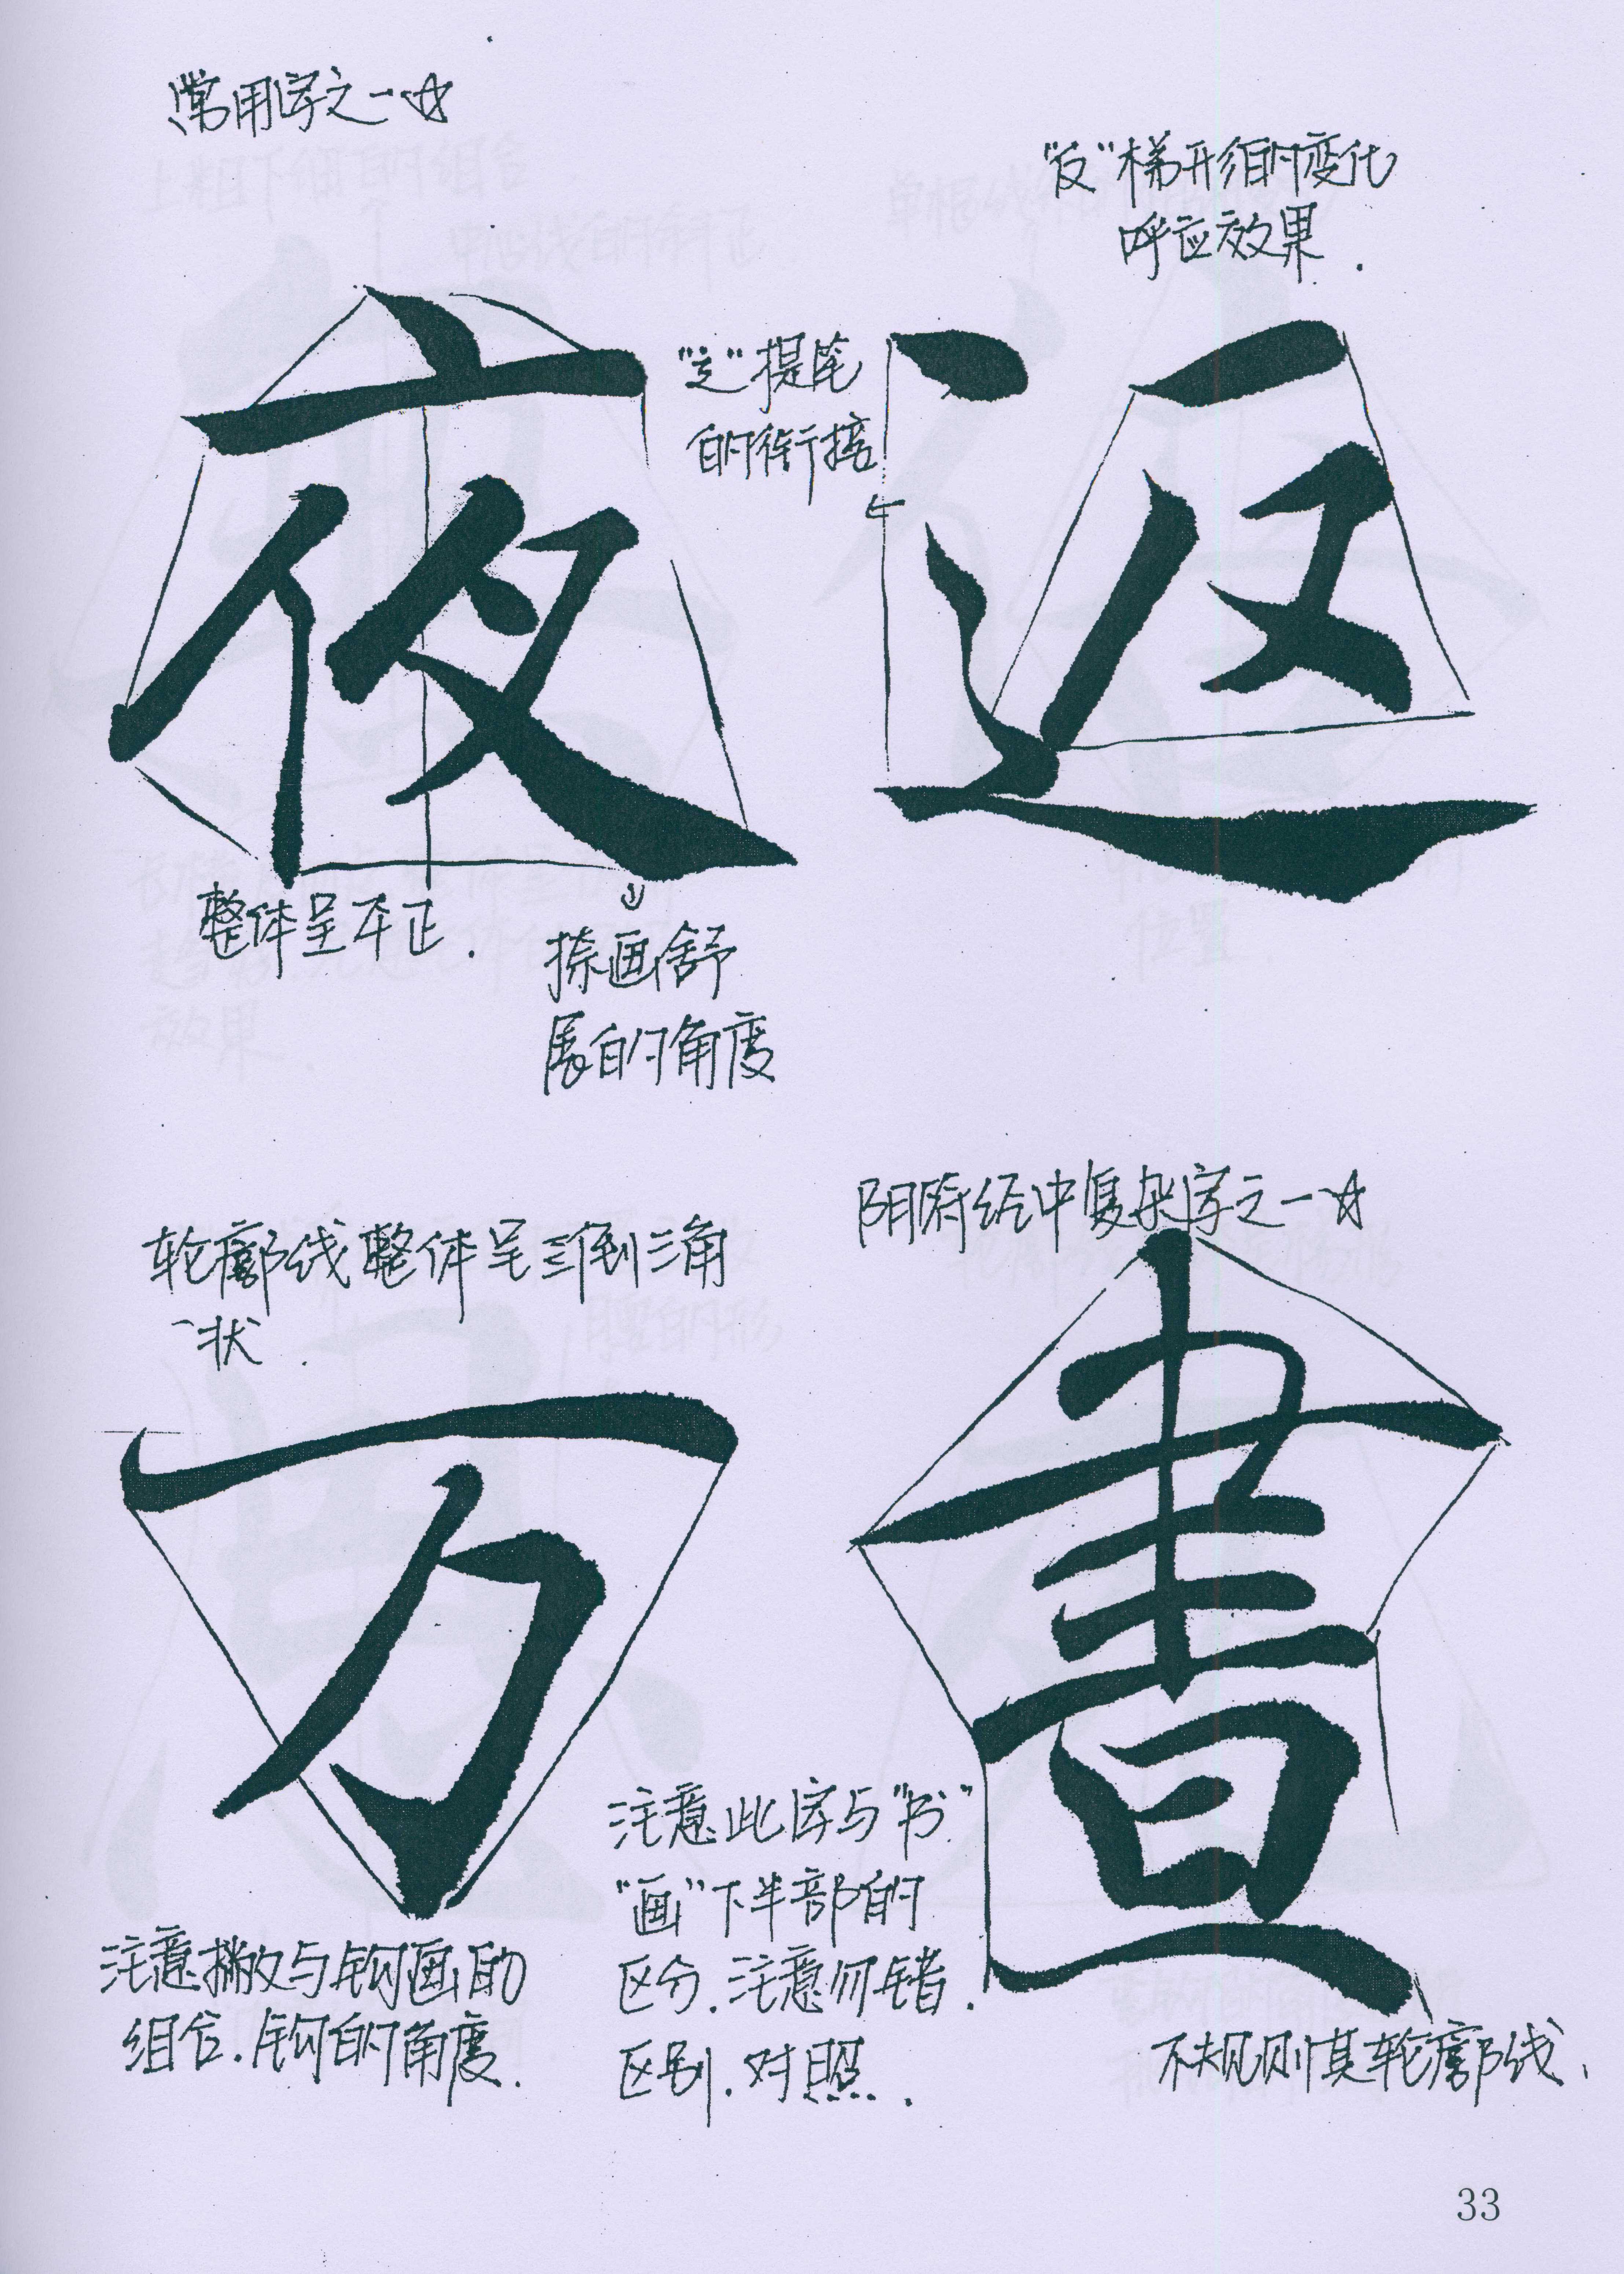 常用字之一☆
夜
整体呈不正.
捺画舒
展的角度
"反"梯形须时变化
呼应效果.
"辶"提笔
的衔接
返
轮廓线整体呈三倒三角
状.
万
注意撇与钩画的
组合.钩的角度.
阴府经中复杂字之一☆
畫
注意此字与"书"
"画"下半部的
区分.注意勿错.
区别.对照.
不规则其轮廓线、
33